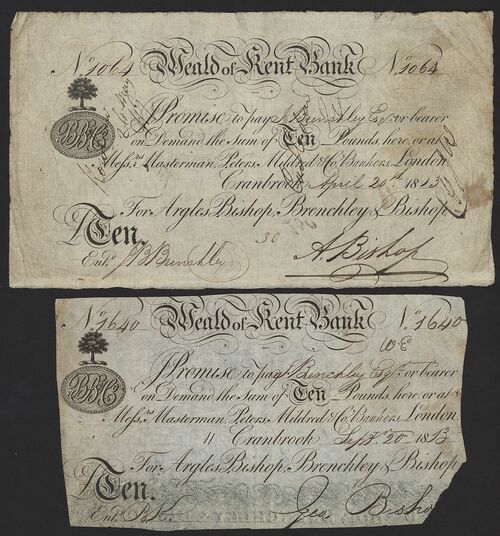 No. 1064 Weald of Kent Bank No. 1064
I Promise to pay J Brenchley Esqr. or bearer
on Demand the Sum of Ten Pounds, here, or at
Messrs. Masterman, Peters, Mildred & Co. Bankers, London.
Cranbrook April 20th 1813
For Argles, Bishop, Brenchley & Bishop,
£Ten. 30
Entd. A. Bishop
No. 1640 Weald of Kent Bank No. 1640
WE
I Promise to pay J Brenchley Esqr. or bearer
on Demand the Sum of Ten Pounds, here, or at
Messrs. Masterman, Peters, Mildred & Co. Bankers, London.
11 Cranbrook Sept. 20 1813
For Argles, Bishop, Brenchley & Bishop
£Ten.
Entd. Geo. Bisho